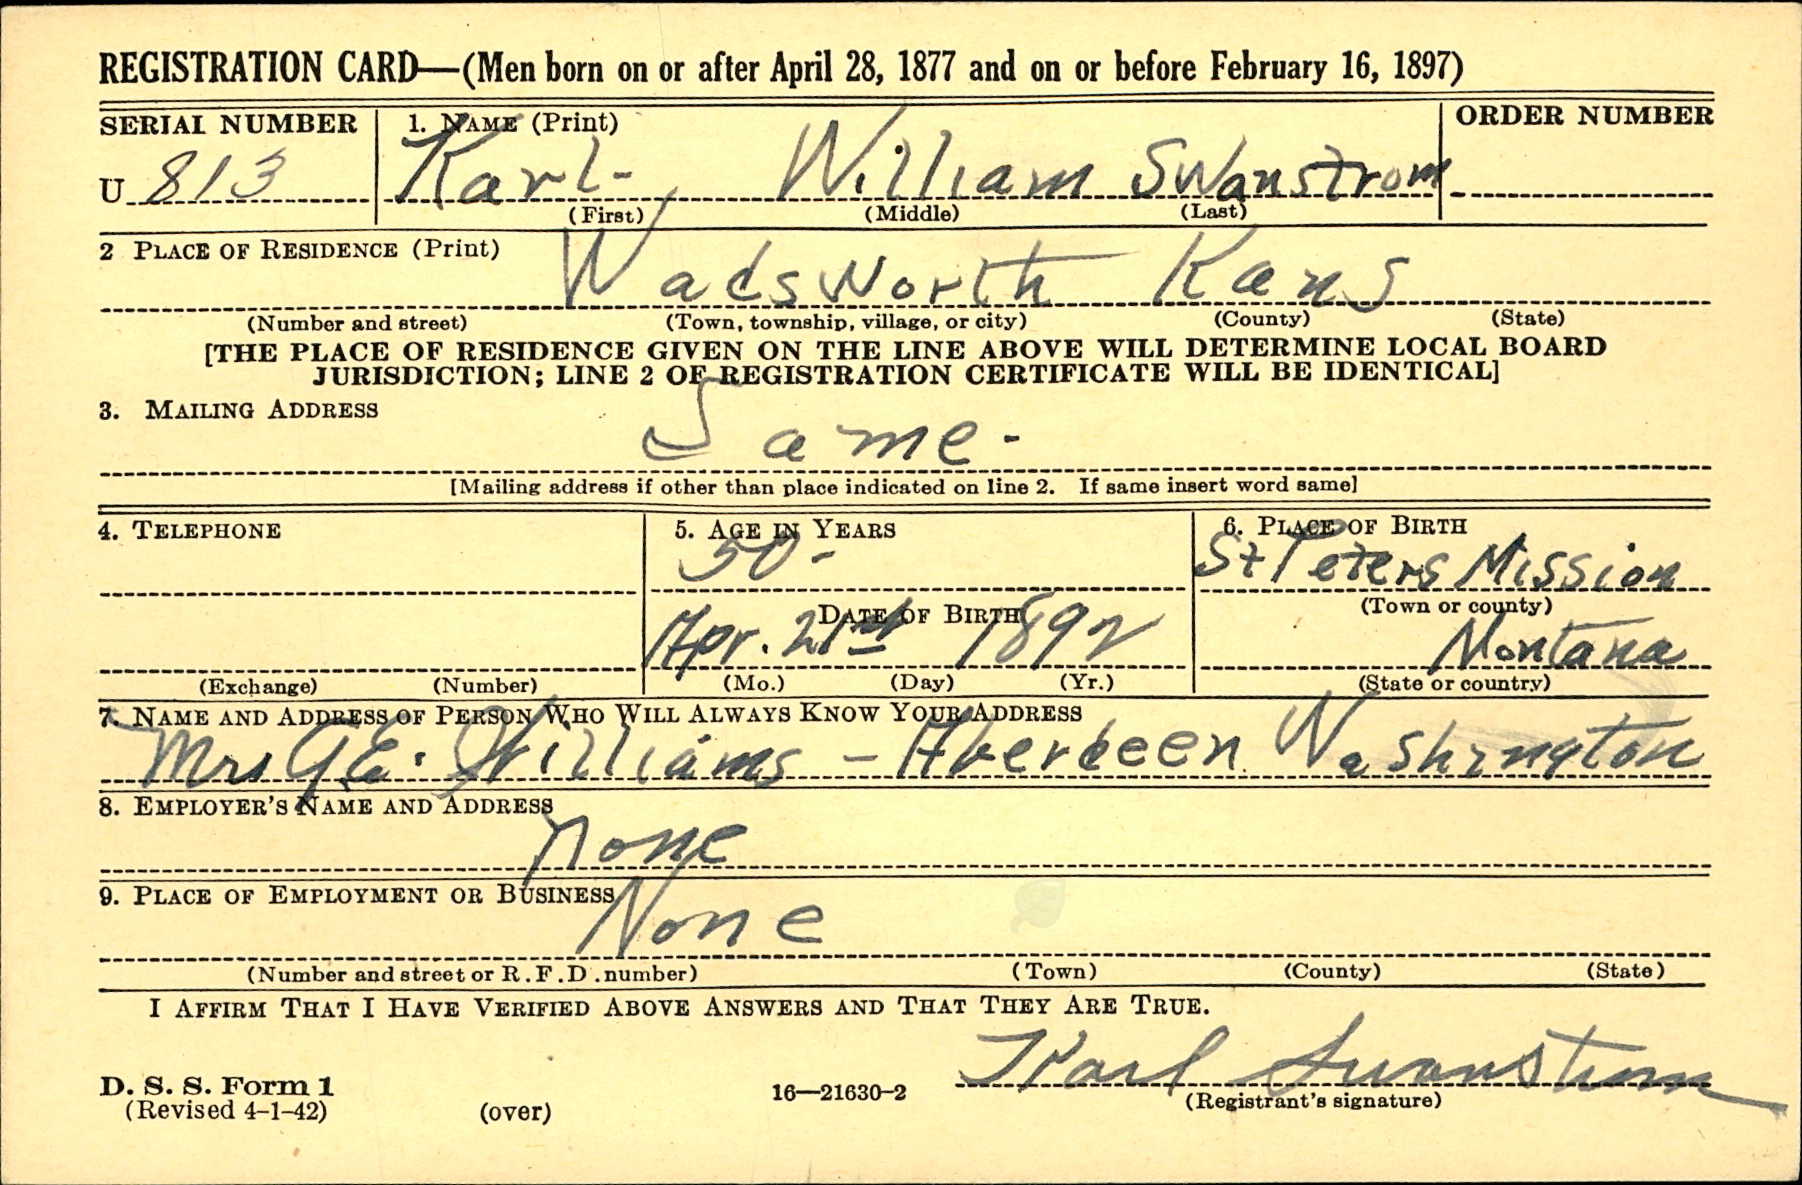 REGISTRATION CARD—(Men born on or after April 28, 1877 and on or before February 16, 1897)
SERIAL NUMBER 1. NAME (Print) ORDER NUMBER
U 813 Karl- William Swanstrom
(First) (Middle) (Last)
2 PLACE OF RESIDENCE (Print)
Wadsworth Kans
(Number and street) (Town, township, village, or city) (County) (State)
[THE PLACE OF RESIDENCE GIVEN ON THE LINE ABOVE WILL DETERMINE LOCAL BOARD
JURISDICTION; LINE 2 OF REGISTRATION CERTIFICATE WILL BE IDENTICAL]
3. MAILING ADDRESS
Same-
[Mailing address if other than place indicated on line 2. If same insert word same]
4. TELEPHONE 5. AGE IN YEARS 6. PLACE OF BIRTH
50- St Peters Mission
DATE OF BIRTH (Town or county)
Apr. 21st 1892 Montana
(Exchange) (Number) (Mo.) (Day) (Yr.) (State or country)
7. NAME AND ADDRESS OF PERSON WHO WILL ALWAYS KNOW YOUR ADDRESS
Mrs G.E. Williams - Aberdeen Washington
8. EMPLOYER'S NAME AND ADDRESS
None
9. PLACE OF EMPLOYMENT OR BUSINESS
None
(Number and street or R.F.D. number) (Town) (County) (State)
I AFFIRM THAT I HAVE VERIFIED ABOVE ANSWERS AND THAT THEY ARE TRUE.
Karl Swanstrom
D. S. S. Form 1 16—21630-2 (Registrant's signature)
(Revised 4-1-42) (over)